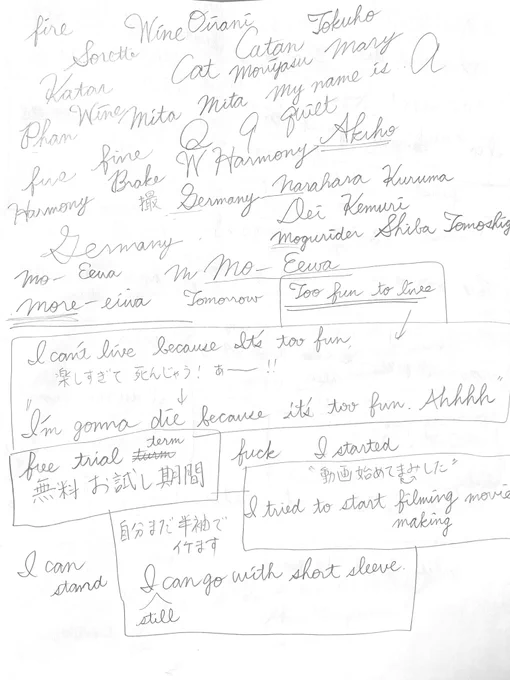 fire Wine Oirani Tokuho
Sorette Catan
Katan Cat Moriyasu Mary
Phan Wine Mita Mita My name is A
Q 9 quiet
fire fine W Harmony Akiho
Harmony Brake 撮 Germany Narahara Kuruma
Dei Kemuri
Germany Mogurider Shiba Tomoshig
Mo- Eewa m Mo- Eewa
More-eiwa Tomorrow Too fun to live
I can't live because It's too fun.
楽しすぎて 死んじゃう! あー !!
"I'm gonna die because it's too fun. Ahhhh"
term
free trial
無料 お試し期間
fuck I started
"動画始めてまみした"
I tried to start filming movie
making
自分まだ半袖で
イケます
I can
stand
I can go with short sleeve.
still